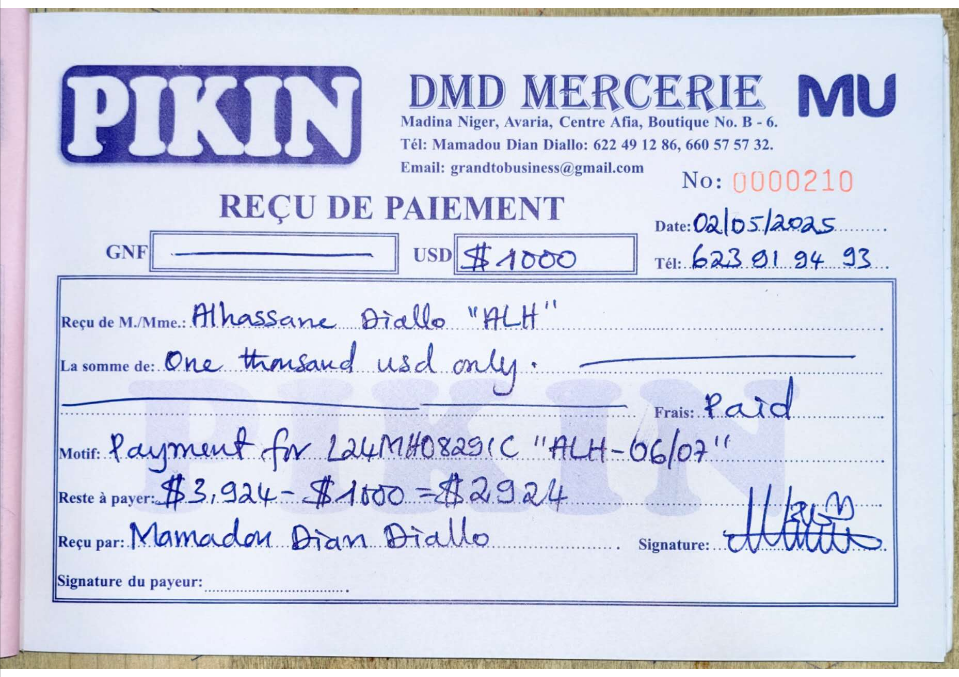 PIKIN
DMD MERCERIE
MU
Madina Niger, Avaria, Centre Afia, Boutique No. B - 6.
Tél: Mamadou Dian Diallo: 622 49 12 86, 660 57 57 32.
Email: grandtobusiness@gmail.com
No: 0000210
REÇU DE PAIEMENT
Date: 02/05/2025
GNF USD $ 1000
Tél: 623 91 94 93
Reçu de M./Mme.: Alhassane Diallo "ALH"
La somme de: One thousand usd only.
Frais: Paid
Motif: Payment for L24MH0829IC "ALH-06/07"
Reste à payer: $3,924 - $1000 = $2924
Reçu par: Mamadou Dian Diallo Signature:
Signature du payeur:
PIKIN